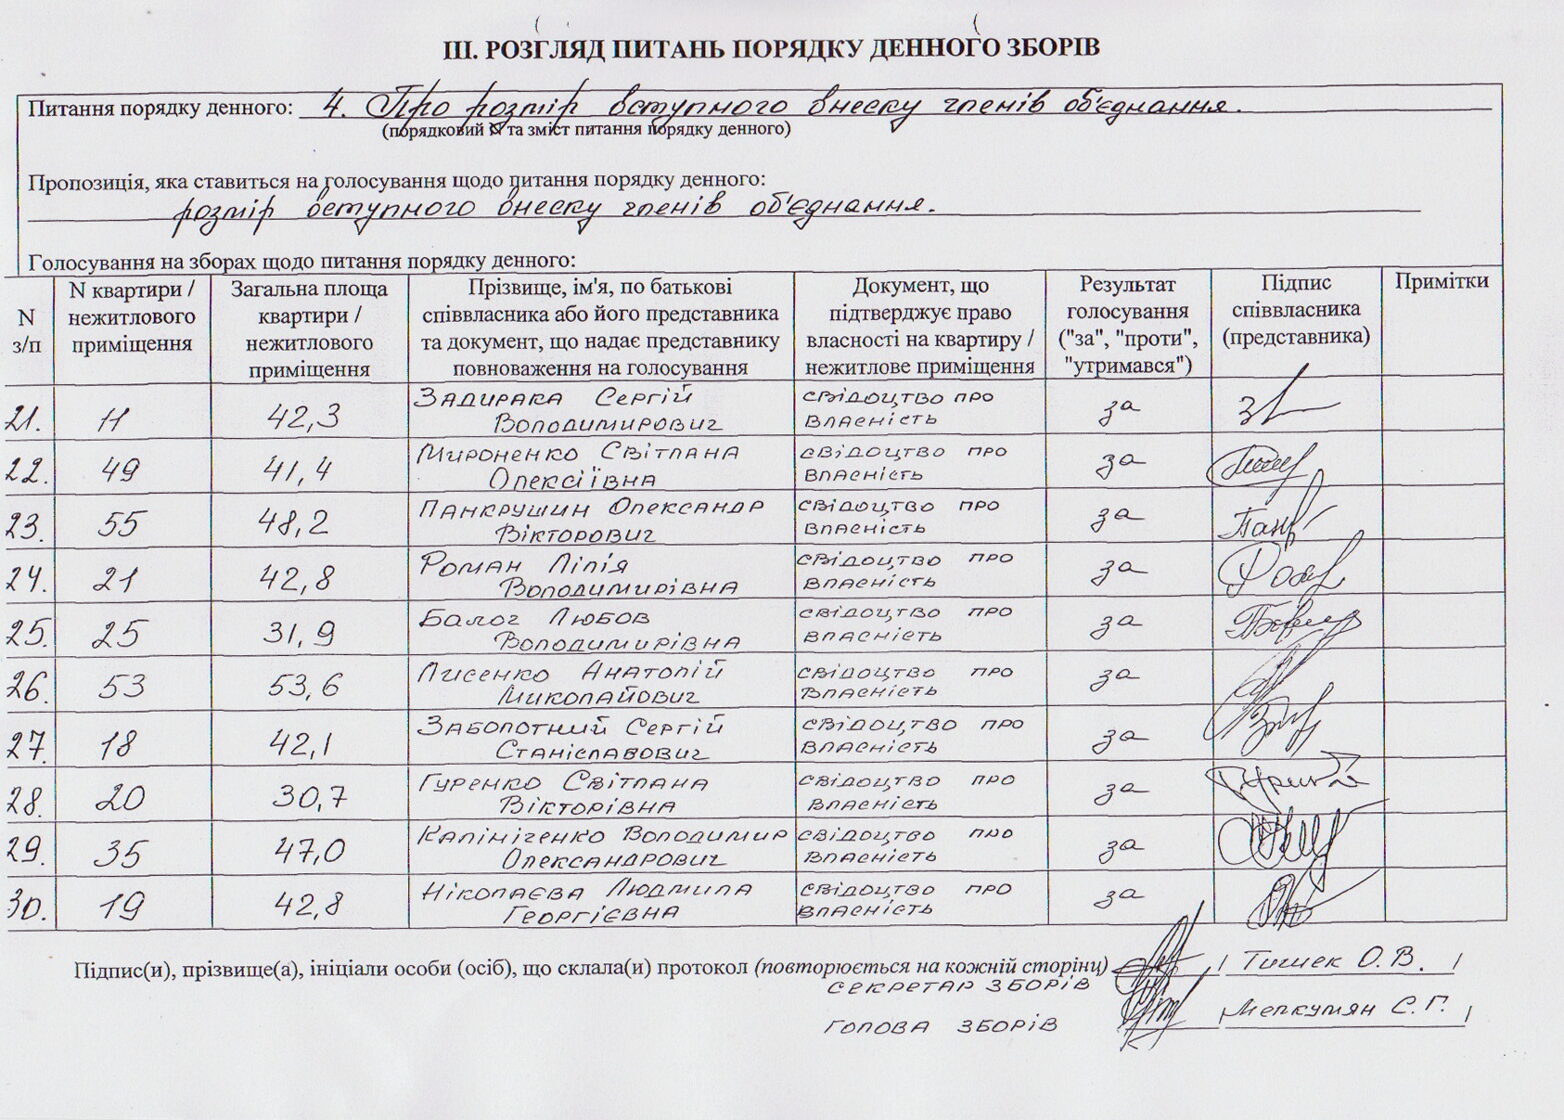 ІІІ. РОЗГЛЯД ПИТАНЬ ПОРЯДКУ ДЕННОГО ЗБОРІВ
Питання порядку денного: 4. Про розмір вступного внеску членів об'єднання.
(порядковий N та зміст питання порядку денного)
Пропозиція, яка ставиться на голосування щодо питання порядку денного:
розмір вступного внеску членів об'єднання.
Голосування на зборах щодо питання порядку денного:
N з/п
N квартири / нежитлового приміщення
Загальна площа квартири / нежитлового приміщення
Прізвище, ім'я, по батькові співвласника або його представника та документ, що надає представнику повноваження на голосування
Документ, що підтверджує право власності на квартиру / нежитлове приміщення
Результат голосування ("за", "проти", "утримався")
Підпис співвласника (представника)
Примітки
21. 11 42,3 Задирака Сергій Володимирович свідоцтво про власність за
22. 49 41,4 Мироненко Світлана Олексіївна свідоцтво про власність за
23. 55 48,2 Панкрушин Олександр Вікторович свідоцтво про власність за
24. 21 42,8 Роман Лілія Володимирівна свідоцтво про власність за
25. 25 31,9 Балог Любов Володимирівна свідоцтво про власність за
26. 53 53,6 Лисенко Анатолій Миколайович свідоцтво про власність за
27. 18 42,1 Заболотний Сергій Станіславович свідоцтво про власність за
28. 20 30,7 Гуренко Світлана Вікторівна свідоцтво про власність за
29. 35 47,0 Калініченко Володимир Олександрович свідоцтво про власність за
30. 19 42,8 Ніколаєва Людмила Георгієвна свідоцтво про власність за
Підпис(и), прізвище(а), ініціали особи (осіб), що склала(и) протокол (повторюється на кожній сторінц) / Тишек О.В. /
секретар зборів
голова зборів / Мелкумян С.Г. /